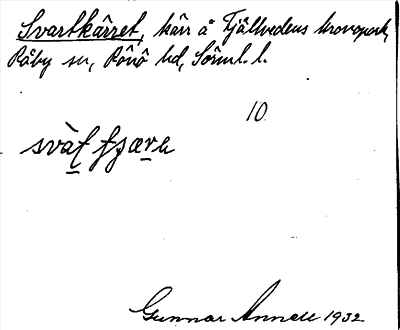 Svartkärret, kärr å Fjällvedens kronopark,
Råby sn, Rönö hd, Sörml. l.
10
Gunnar Annell 1932